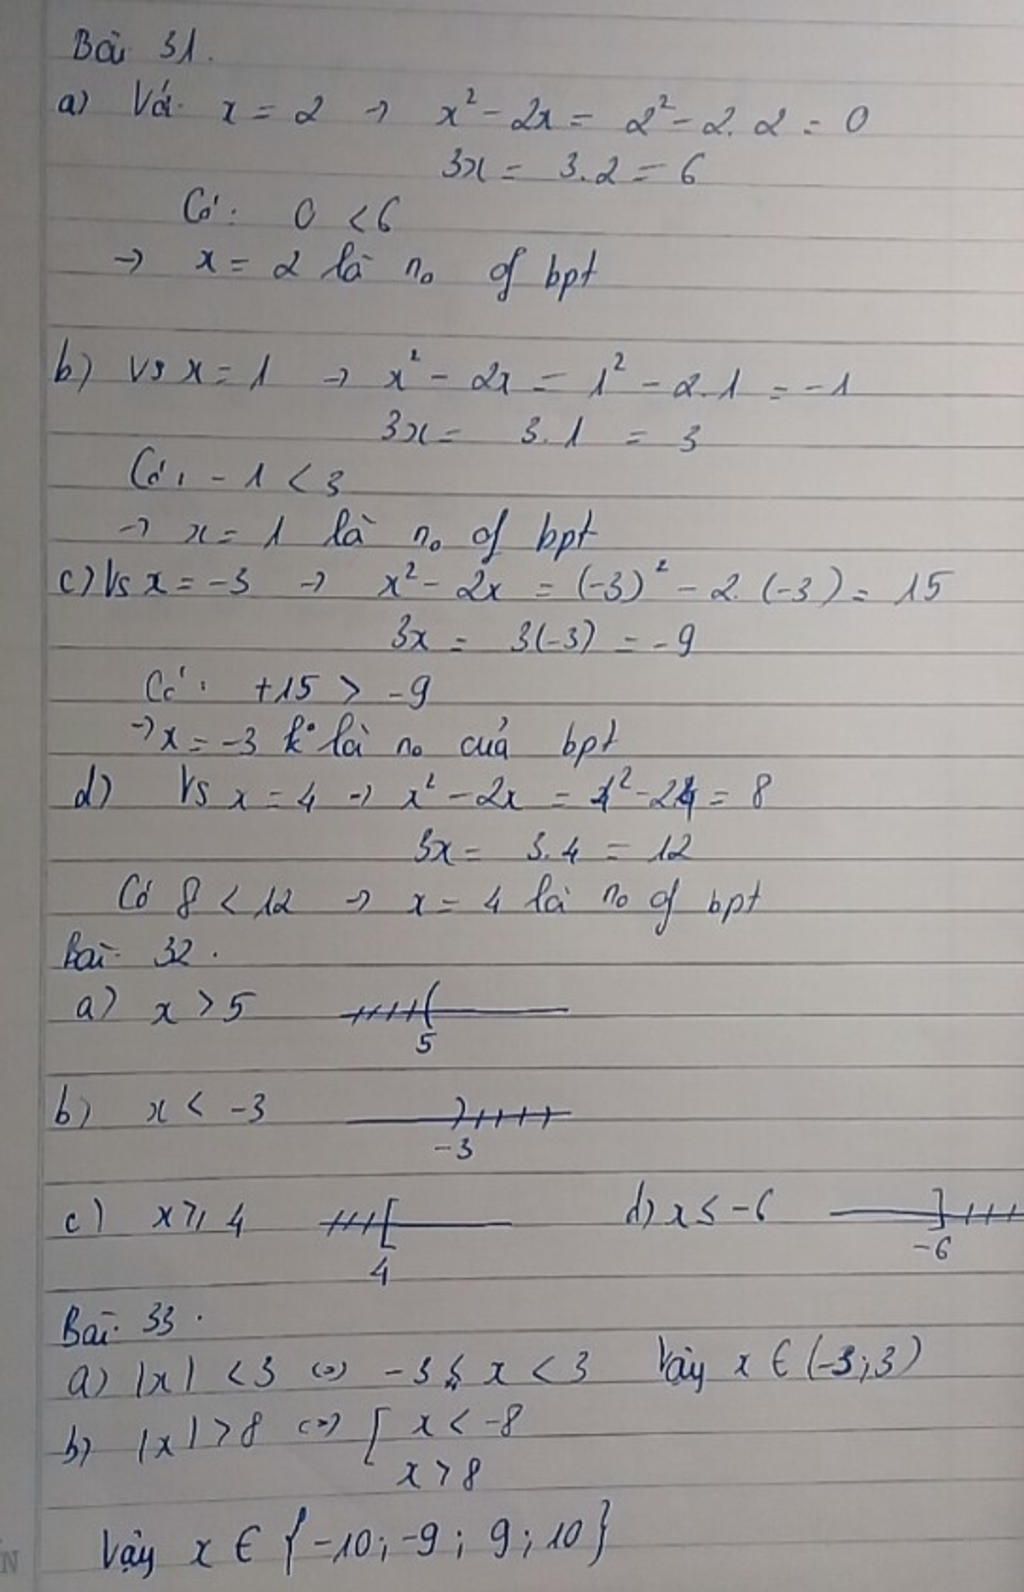 Bài 31.
a) Với x = 2 → x² - 2x = 2² - 2. 2 = 0
3x = 3.2 = 6
Có: 0 < 6
→ x = 2 là n₀ of bpt
b) Vs x = 1 → x² - 2x = 1² - 2.1 = -1
3x = 3.1 = 3
Có: -1 < 3
→ x = 1 là n₀ of bpt
c) Vs x = -3 → x² - 2x = (-3)² - 2. (-3) = 15
3x = 3(-3) = -9
Có: +15 > -9
→ x = -3 k° là n₀ của bpt
d) Vs x = 4 → x² - 2x = 4² - 24 = 8
3x = 3.4 = 12
Có 8 < 12 → x = 4 là n₀ of bpt
Bài 32.
a) x > 5
5
b) x < -3
-3
c) x ≥ 4 d) x ≤ -6
4 -6
Bài 33.
a) |x| < 3 <=> -3 < x < 3 Vậy x ∈ (-3;3)
b) |x| > 8 <=> [ x < -8
x > 8
Vậy x ∈ {-10; -9; 9; 10}